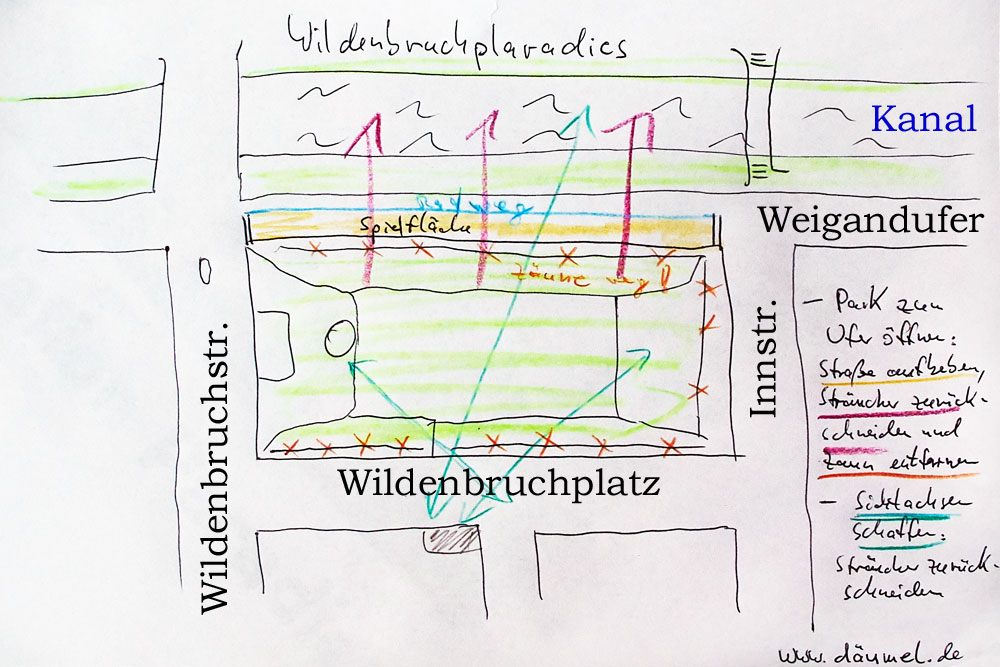 Wildenbruchplaradies
Kanal
Radweg
Spielfläche
Weigandufer
Zäune weg!!
Wildenbruchstr.
Innstr.
Wildenbruchplatz
– Park zum
Ufer öffnen:
Straße aufheben,
Sträucher zurück-
schneiden und
Zaun entfernen
– Sichtachsen
schaffen:
Sträucher zurück-
schneiden
www.däumel.de